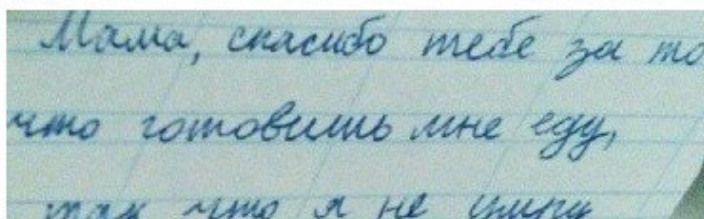 Мама, спасибо тебе за то
что готовишь мне еду,
так что я не умру